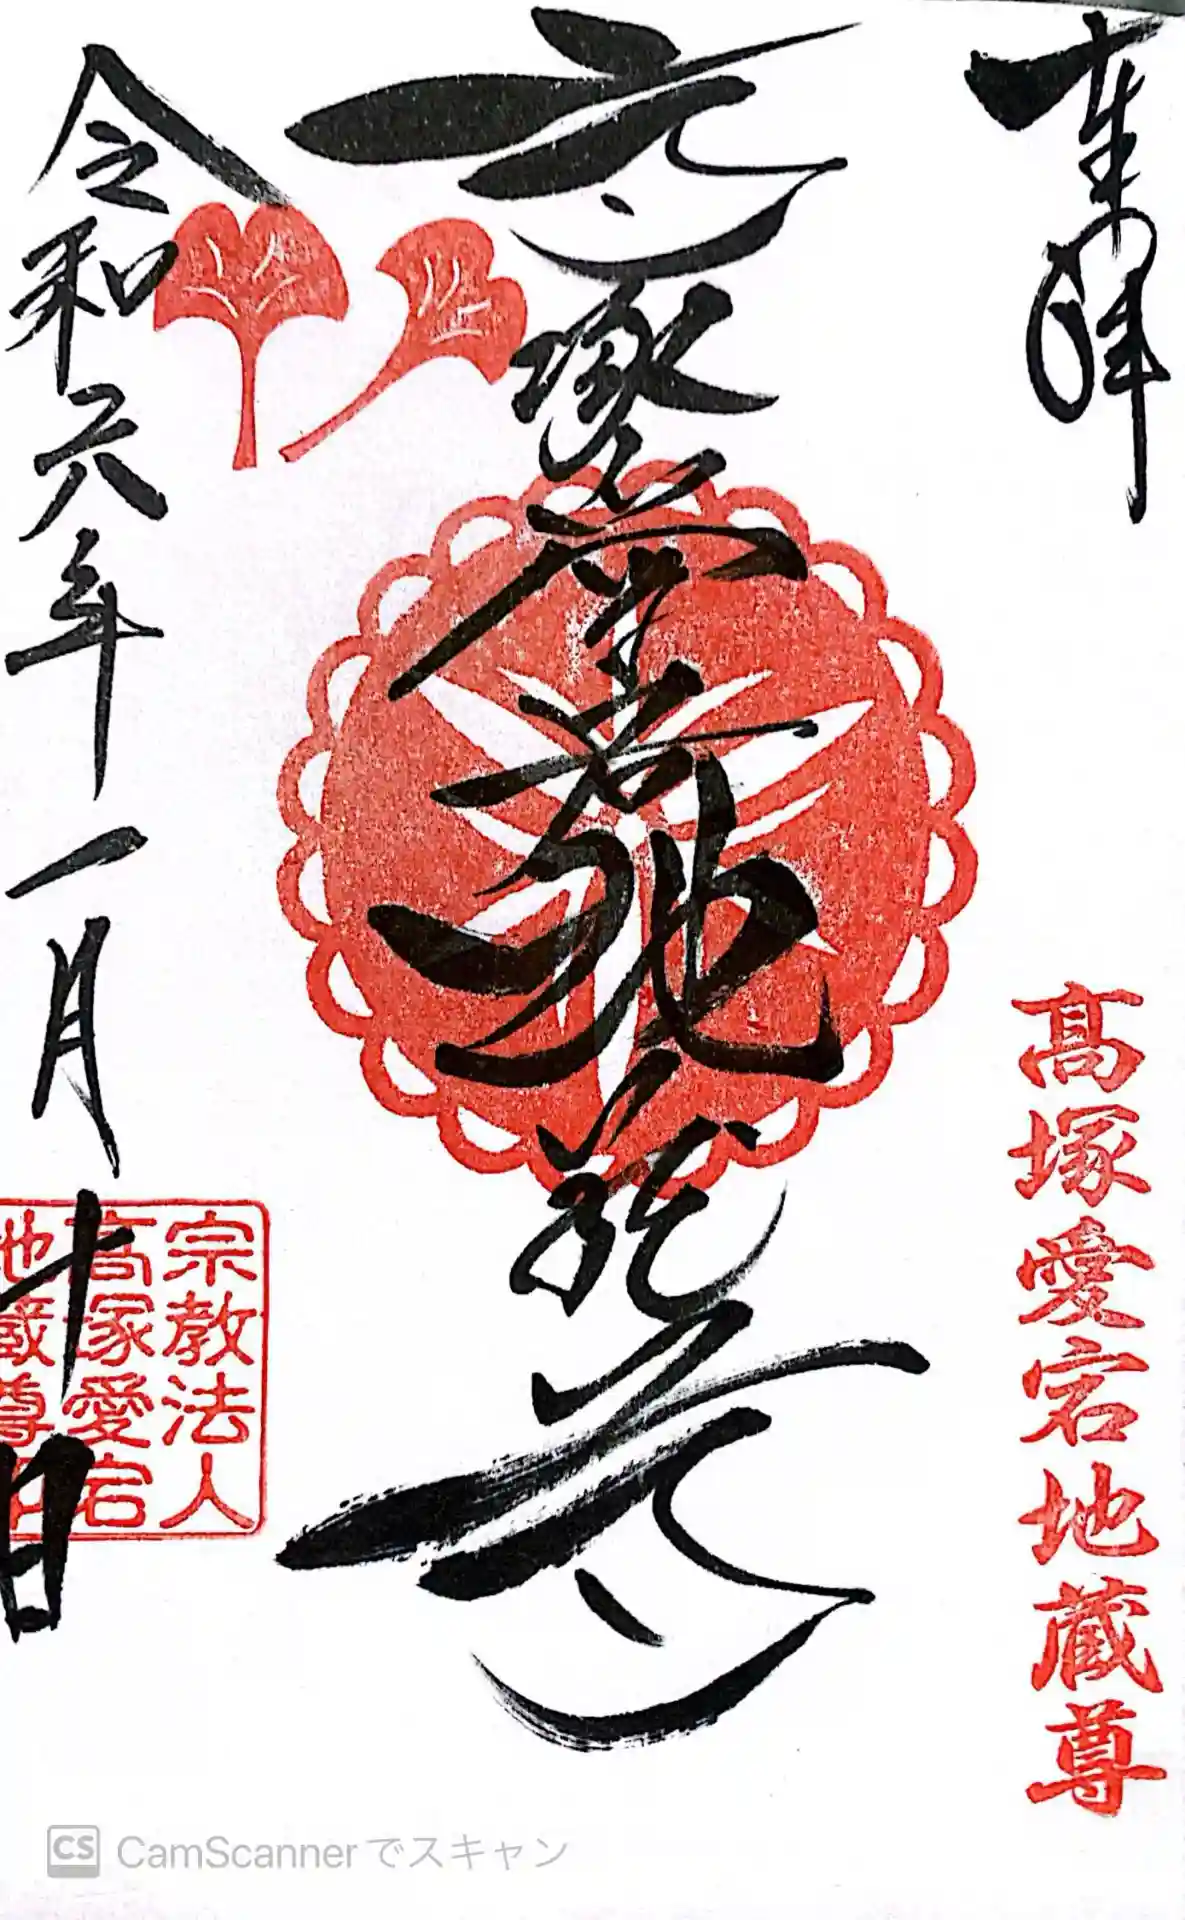 奉拝
高塚愛宕地蔵尊
高塚愛宕地蔵尊
令和六年一月十日
宗教法人
高塚愛宕
地蔵尊印
CamScannerでスキャン